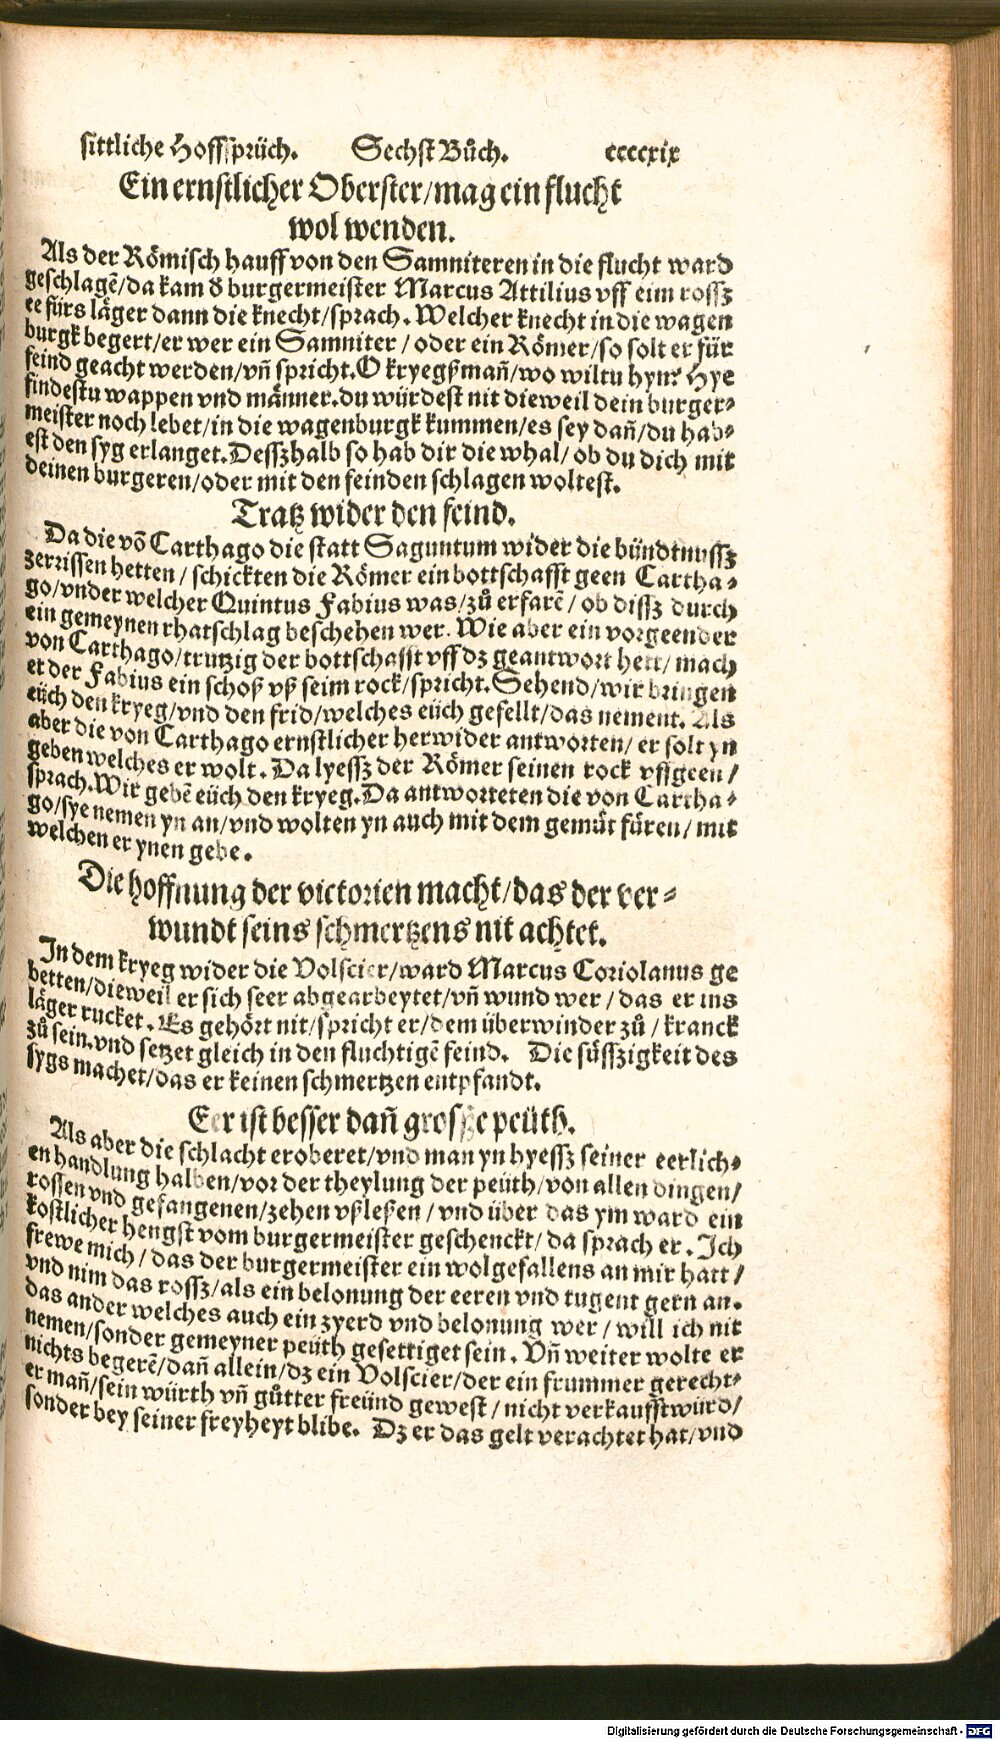 sittliche Hoffsprüch. Sechst Bůch. ccccxix
Ein ernstlicher Oberster/mag ein flucht
wol wenden.
Als der Römisch hauff von den Samniteren in die flucht ward
geschlagẽ/da kam d̕ burgermeister Marcus Attilius vff eim rossz
ee fürs läger dann die knecht/sprach. Welcher knecht in die wagen
burgk begert/er wer ein Samniter / oder ein Römer/so solt er für
feind geacht werden/vñ spricht. O kryegßmañ/wo wiltu hyn? Hye
findestu wappen vnd männer.du würdest nit dieweil dein burger-
meister noch lebet/in die wagenburgk kummen/es sey dañ/du hab-
est den syg erlanget.Dessz halb so hab dir die whal/ ob du dich mit
deinen burgeren/oder mit den feinden schlagen woltest.
Tratz wider den feind.
Da die võ Carthago die statt Saguntum wider die bündtnussz
zerrissen hetten / schickten die Römer ein bottschafft geen Cartha-
go/vnder welcher Quintus Fabius was/zů erfarẽ / ob dissz durch
ein gemeynen rhatschlag beschehen wer. Wie aber ein vorgeender
von Carthago/trutzig der bottschafft vff dz geantwort hett/ mach
et der Fabius ein schoß vß seim rock/spricht. Sehend/wir bringen
eüch den kryeg/vnd den frid/welches eüch gefellt/das nement. Als
aber die von Carthago ernstlicher herwider antworten/ er solt yn
geben welches er wolt. Da lyessz der Römer seinen rock vffgeen/
sprach.Wir gebẽ eüch den kryeg.Da antworteten die von Cartha-
go/sye nemen yn an/vnd wolten yn auch mit dem gemüt füren/ mit
welchen er ynen gebe.
Die hoffnung der victorien macht/das der ver-
wundt seins schmertzens nit achtet.
In dem kryeg wider die Volscier/ward Marcus Coriolanus ge
betten/dieweil er sich seer abgearbeytet/vñ wund wer / das er ins
läger rucket. Es gehört nit/spricht er/dem überwinder zů / kranck
zů sein.vnd setzet gleich in den fluchtigẽ feind. Die süsszigkeit des
sygs machet/das er keinen schmertzen entpfandt.
Eer ist besser dañ grosße peüth.
Als aber die schlacht eroberet/vnd man yn hyessz seiner eerlich-
en handlung halben/vor der theylung der peüth/von allen dingen/
rossen vnd gefangenen/zehen vßleßen / vnd über das ym ward ein
kostlicher hengst vom burgermeister geschenckt/ da sprach er. Ich
frewe mich / das der burgermeister ein wolgefallens an mir hatt/
vnd nim das rossz/als ein belonung der eeren vnd tugent gern an.
das ander welches auch ein zyerd vnd belonung wer / will ich nit
nemen/sonder gemeyner peüth gesettiget sein. Vñ weiter wolte er
nichts begerẽ/dañ allein/dz ein Volscier/der ein frummer gerecht-
er mañ/sein würth vñ gůtter freünd gewest / nicht verkaufft würd/
sonder bey seiner freyheyt blibe. Dz er das gelt verachtet hat/vnd
Digitalisierung gefördert durch die Deutsche Forschungsgemeinschaft - DFG